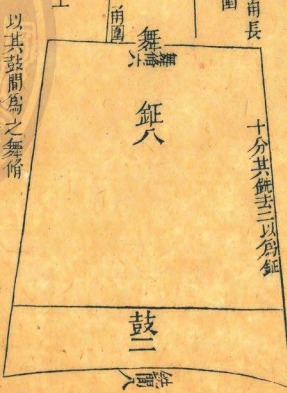 甬長
圍
甬圍
工
舞
舞脩六
鉦八
十分其銑去二以爲鉦
以其鼓間爲之舞脩
鼓二
銑間八